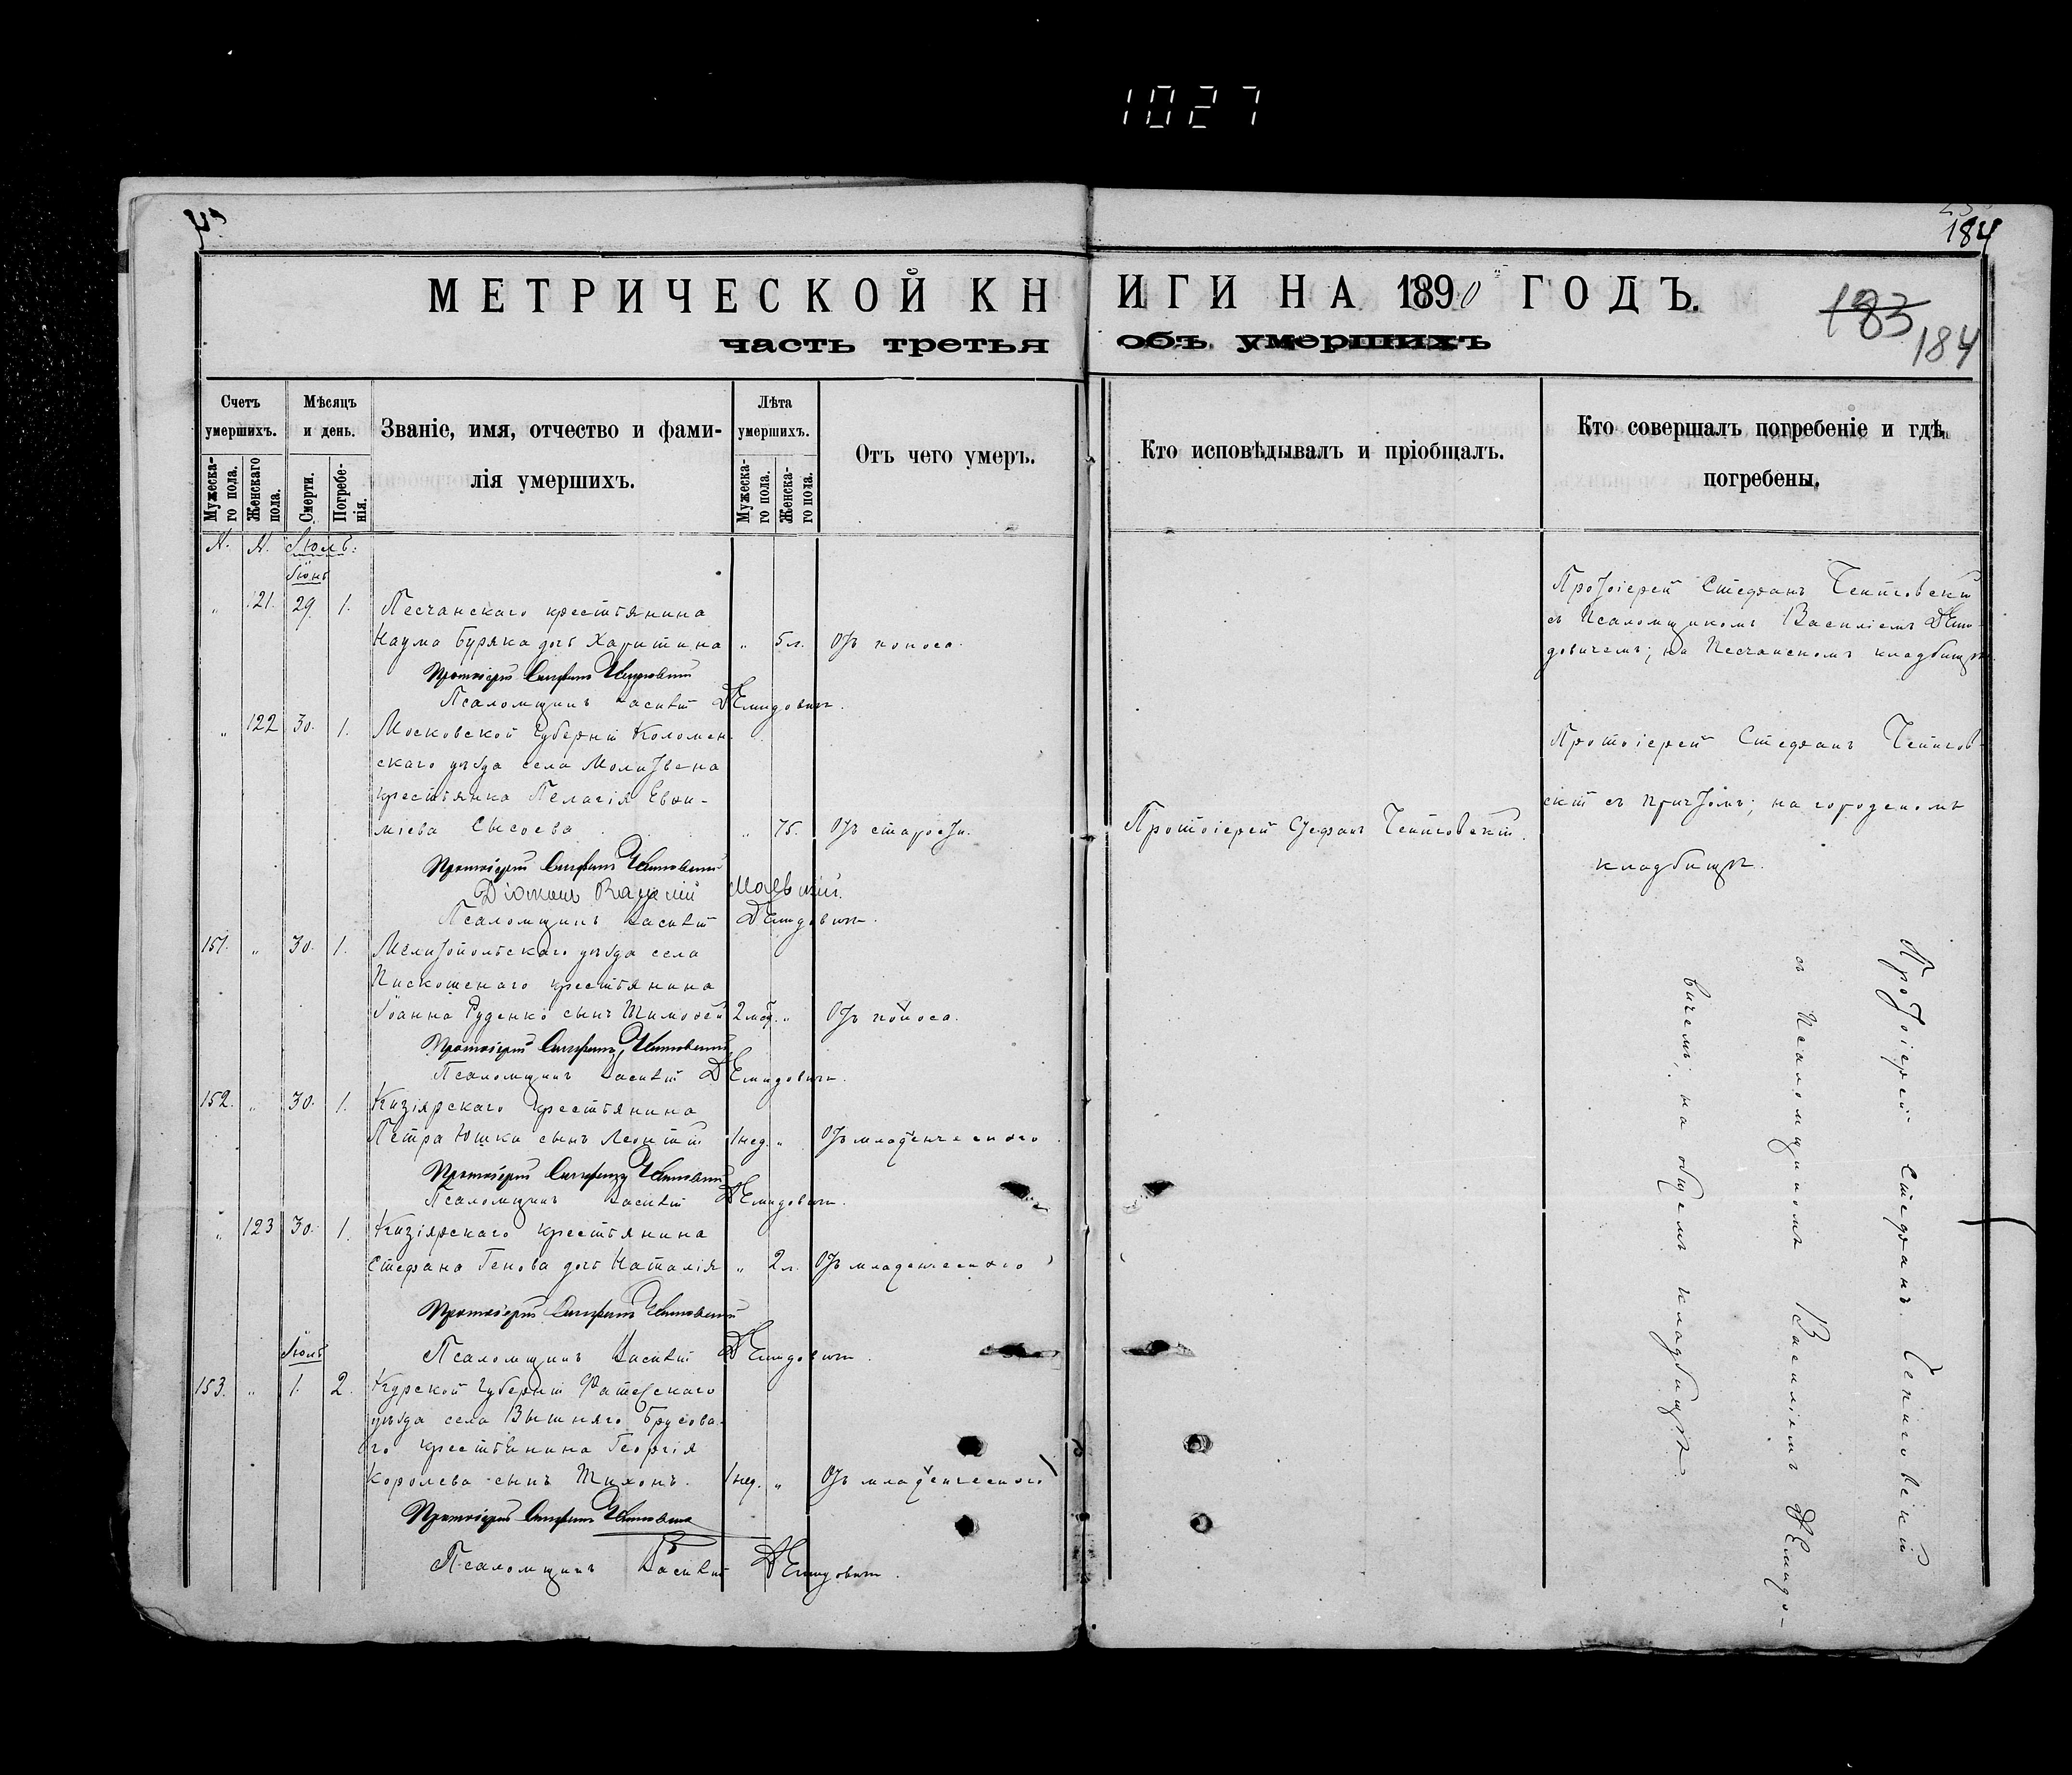 1027
184
МЕТРИЧЕСКОЙ КНИГИ НА 1890 ГОДЪ.
183
184
часть третья объ умершихъ
Счетъ умершихъ.
Мужеска-го пола.
Женскаго пола.
Мѣсяцъ и день.
Смерти.
Погребе-нія.
Званіе, имя, отчество и фами-
лія умершихъ.
Лѣта умершихъ.
Мужеска-го пола.
Женска-го пола.
Отъ чего умеръ.
Кто исповѣдывалъ и пріобщалъ.
Кто совершалъ погребеніе и гдѣ
погребены.
N. N. Іюль:
Іюнь
" 121. 29. 1. Песчанскаго крестьянина
Наума Буряка дочь Харитина " 5 л. Отъ поноса.
Протоіерей
Псаломщикъ Василій Демидовичъ.
Протоіерей Стефанъ
съ Псаломщикомъ Василіемъ Деми-
довичемъ; на Песчанскомъ кладбищѣ
" 122 30. 1. Московской Губерніи Коломен-
скаго уѣзда села
крестьянка Пелагія Евѳи-
міева Сысоева " 75. Отъ старости.
Протоіерей Стефанъ
Протоіерей
Діаконъ
Псаломщикъ Василій Демидовичъ.
Протоіерей Стефанъ
съ причтомъ; на городскомъ
кладбищѣ.
151. " 30. 1. Мелитопольскаго уѣзда села
крестьянина
Іоанна Руденко сынъ Тимоѳей 2 мѣс. " Отъ поноса.
Протоіерей
Псаломщикъ Василій Демидовичъ.
152. " 30. 1. Кизіярскаго крестьянина
Петра Юшки сынъ Леонтій 1 нед. " Отъ младенческаго
Протоіерей
Псаломщикъ Василій Демидовичъ.
" 123 30. 1. Кизіярскаго крестьянина
Стефана Генова дочь Наталія " 2 л. Отъ младенческаго
Протоіерей
Псаломщикъ Василій Демидовичъ.
Іюль
153. " 1. 2. Курской Губерніи Фатежскаго
уѣзда села Вышняго Брусова-
го крестьянина Георгія
Королева сынъ Тихонъ. 1 нед. " Отъ младенческаго
Протоіерей
Псаломщикъ Василій Демидовичъ.
Протоіерей Стефанъ
съ Псаломщикомъ Василіемъ Демидо-
вичемъ; на общемъ кладбищѣ.